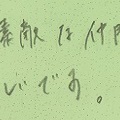 素敵な仲間
いです。